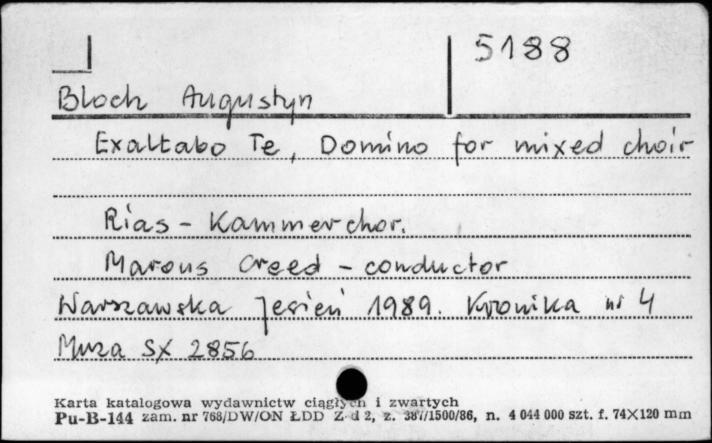 5188
Bloch Augustyn
Exaltabo Te, Domino for mixed choir
Rias - Kammerchor.
Marcus Creed - conductor
Warszawska Jesień 1989. Kronika nr 4
Muza SX 2856
Karta katalogowa wydawnictw ciągłych i zwartych
Pu-B-144 zam. nr 768/DW/ON ŁDD Z. d 2, z. 387/1500/86, n. 4 044 000 szt. f. 74X120 mm